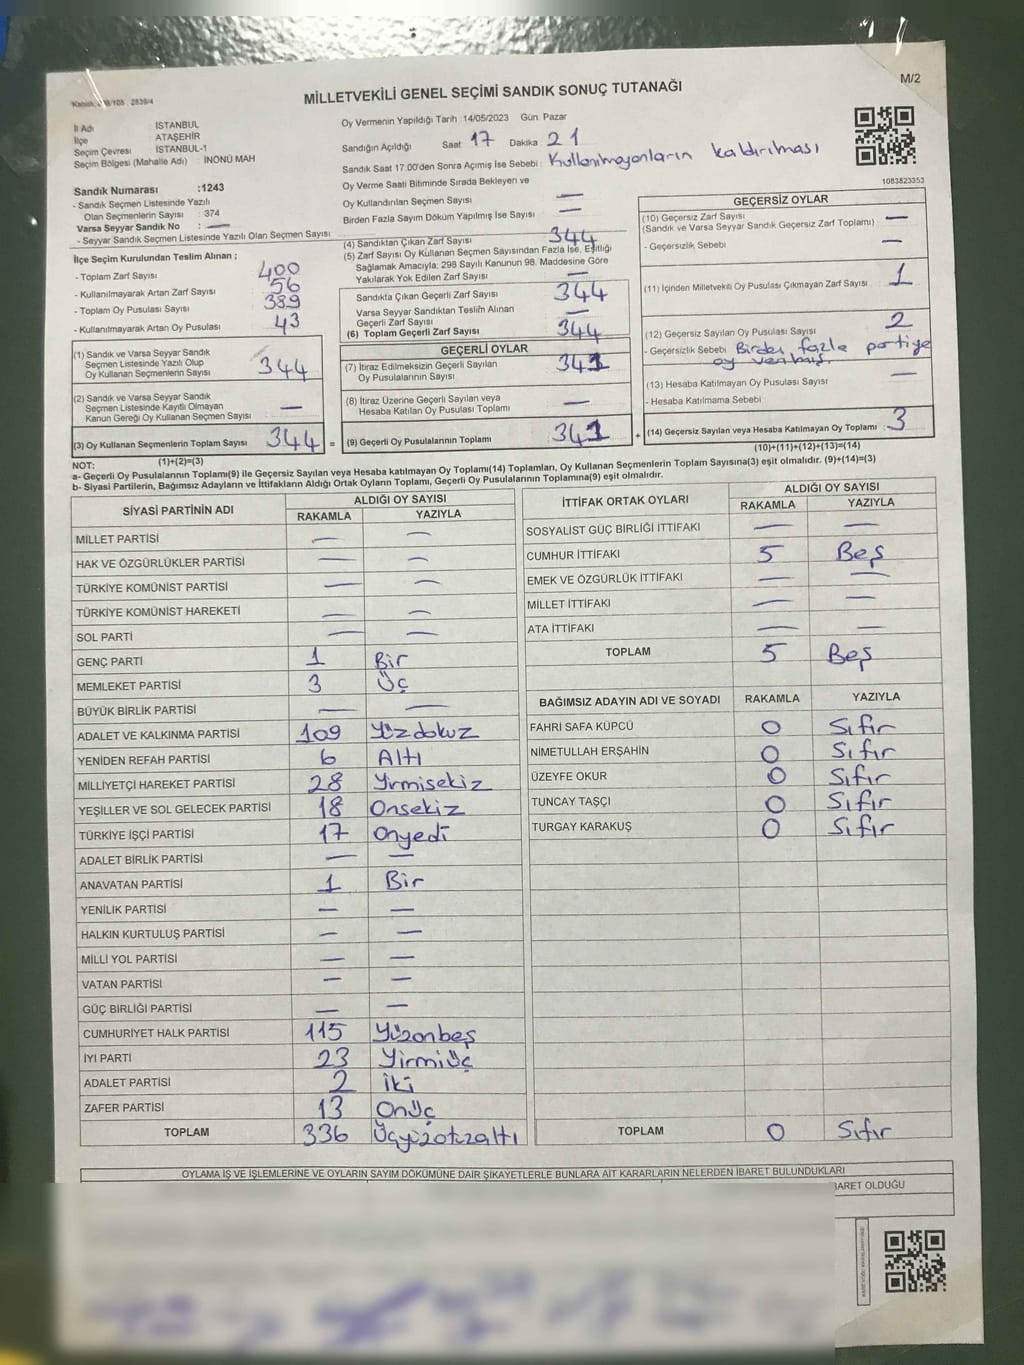 M/2
MİLLETVEKİLİ GENEL SEÇİMİ SANDIK SONUÇ TUTANAĞI
İl Adı İSTANBUL
İlçe ATAŞEHİR
Seçim Çevresi İSTANBUL-1
Seçim Bölgesi (Mahalle Adı) : İNÖNÜ MAH
Oy Vermenin Yapıldığı Tarih :14/05/2023 Gün Pazar
Sandığın Açıldığı Saat: 17 Dakika: 21
Sandık Saat 17.00'den Sonra Açımış İse Sebebi : Kullanılmayanların kaldırılması
1083823353
Sandık Numarası :1243
- Sandık Seçmen Listesinde Yazılı
Olan Seçmenlerin Sayısı : 374
Varsa Seyyar Sandık No : —
- Seyyar Sandık Seçmen Listesinde Yazılı Olan Seçmen Sayısı
İlçe Seçim Kurulundan Teslim Alınan ;
- Toplam Zarf Sayısı 400
- Kullanılmayarak Artan Zarf Sayısı 56
- Toplam Oy Pusulası Sayısı 389
- Kullanılmayarak Artan Oy Pusulası 43
(1) Sandık ve Varsa Seyyar Sandık
Seçmen Listesinde Yazılı Olup
Oy Kullanan Seçmenlerin Sayısı 344
(2) Sandık ve Varsa Seyyar Sandık
Seçmen Listesinde Kayıtlı Olmayan
Kanun Gereği Oy Kullanan Seçmen Sayısı —
(3) Oy Kullanan Seçmenlerin Toplam Sayısı 344 =
(1)+(2)=(3)
Oy Verme Saati Bitiminde Sırada Bekleyen ve
Oy Kullandırılan Seçmen Sayısı —
Birden Fazla Sayım Döküm Yapılmış İse Sayısı —
(4) Sandıktan Çıkan Zarf Sayısı 344
(5) Zarf Sayısı Oy Kullanan Seçmen Sayısından Fazla İse, Eşitliği
Sağlamak Amacıyla; 298 Sayılı Kanunun 98. Maddesine Göre
Yakılarak Yok Edilen Zarf Sayısı —
Sandıkta Çıkan Geçerli Zarf Sayısı 344
Varsa Seyyar Sandıktan Teslim Alınan
Geçerli Zarf Sayısı —
(6) Toplam Geçerli Zarf Sayısı 344
GEÇERLİ OYLAR
(7) İtiraz Edilmeksizin Geçerli Sayılan
Oy Pusulalarının Sayısı 341
(8) İtiraz Üzerine Geçerli Sayılan veya
Hesaba Katılan Oy Pusulası Toplamı —
(9) Geçerli Oy Pusulalarının Toplamı 341 +
GEÇERSİZ OYLAR
(10) Geçersiz Zarf Sayısı —
(Sandık ve Varsa Seyyar Sandık Geçersiz Zarf Toplamı)
- Geçersizlik Sebebi —
(11) İçinden Milletvekili Oy Pusulası Çıkmayan Zarf Sayısı 1
(12) Geçersiz Sayılan Oy Pusulası Sayısı 2
- Geçersizlik Sebebi Birden fazla partiye
oy
(13) Hesaba Katılmayan Oy Pusulası Sayısı —
- Hesaba Katılmama Sebebi
(14) Geçersiz Sayılan veya Hesaba Katılmayan Oy Toplamı : 3
(10)+(11)+(12)+(13)=(14)
NOT:
a- Geçerli Oy Pusulalarının Toplamı(9) ile Geçersiz Sayılan veya Hesaba katılmayan Oy Toplamı(14) Toplamları, Oy Kullanan Seçmenlerin Toplam Sayısına(3) eşit olmalıdır. (9)+(14)=(3)
b- Siyasi Partilerin, Bağımsız Adayların ve İttifakların Aldığı Ortak Oyların Toplamı, Geçerli Oy Pusulalarının Toplamına(9) eşit olmalıdır.
SİYASİ PARTİNİN ADI ALDIĞI OY SAYISI
RAKAMLA YAZIYLA
MİLLET PARTİSİ — —
HAK VE ÖZGÜRLÜKLER PARTİSİ — —
TÜRKİYE KOMÜNİST PARTİSİ — —
TÜRKİYE KOMÜNİST HAREKETİ — —
SOL PARTİ — —
GENÇ PARTİ 1 Bir
MEMLEKET PARTİSİ 3 Üç
BÜYÜK BİRLİK PARTİSİ — —
ADALET VE KALKINMA PARTİSİ 109 Yüzdokuz
YENİDEN REFAH PARTİSİ 6 Altı
MİLLİYETÇİ HAREKET PARTİSİ 28 Yirmisekiz
YEŞİLLER VE SOL GELECEK PARTİSİ 18 Onsekiz
TÜRKİYE İŞÇİ PARTİSİ 17 Onyedi
ADALET BİRLİK PARTİSİ — —
ANAVATAN PARTİSİ 1 Bir
YENİLİK PARTİSİ — —
HALKIN KURTULUŞ PARTİSİ — —
MİLLİ YOL PARTİSİ — —
VATAN PARTİSİ — —
GÜÇ BİRLİĞİ PARTİSİ — —
CUMHURİYET HALK PARTİSİ 115 Yüzonbeş
İYİ PARTİ 23 Yirmiüç
ADALET PARTİSİ 2 İki
ZAFER PARTİSİ 13 Onüç
TOPLAM 336 Üçyüzotuzaltı
İTTİFAK ORTAK OYLARI ALDIĞI OY SAYISI
RAKAMLA YAZIYLA
SOSYALİST GÜÇ BİRLİĞİ İTTİFAKI — —
CUMHUR İTTİFAKI 5 Beş
EMEK VE ÖZGÜRLÜK İTTİFAKI — —
MİLLET İTTİFAKI — —
ATA İTTİFAKI — —
TOPLAM 5 Beş
BAĞIMSIZ ADAYIN ADI VE SOYADI RAKAMLA YAZIYLA
FAHRİ SAFA KÜPCÜ 0 Sıfır
NİMETULLAH ERŞAHİN 0 Sıfır
ÜZEYFE OKUR 0 Sıfır
TUNCAY TAŞÇI 0 Sıfır
TURGAY KARAKUŞ 0 Sıfır
TOPLAM 0 Sıfır
OYLAMA İŞ VE İŞLEMLERİNE VE OYLARIN SAYIM DÖKÜMÜNE DAİR ŞİKAYETLERLE BUNLARA AİT KARARLARIN NELERDEN İBARET BULUNDUKLARI
BARET OLDUĞU